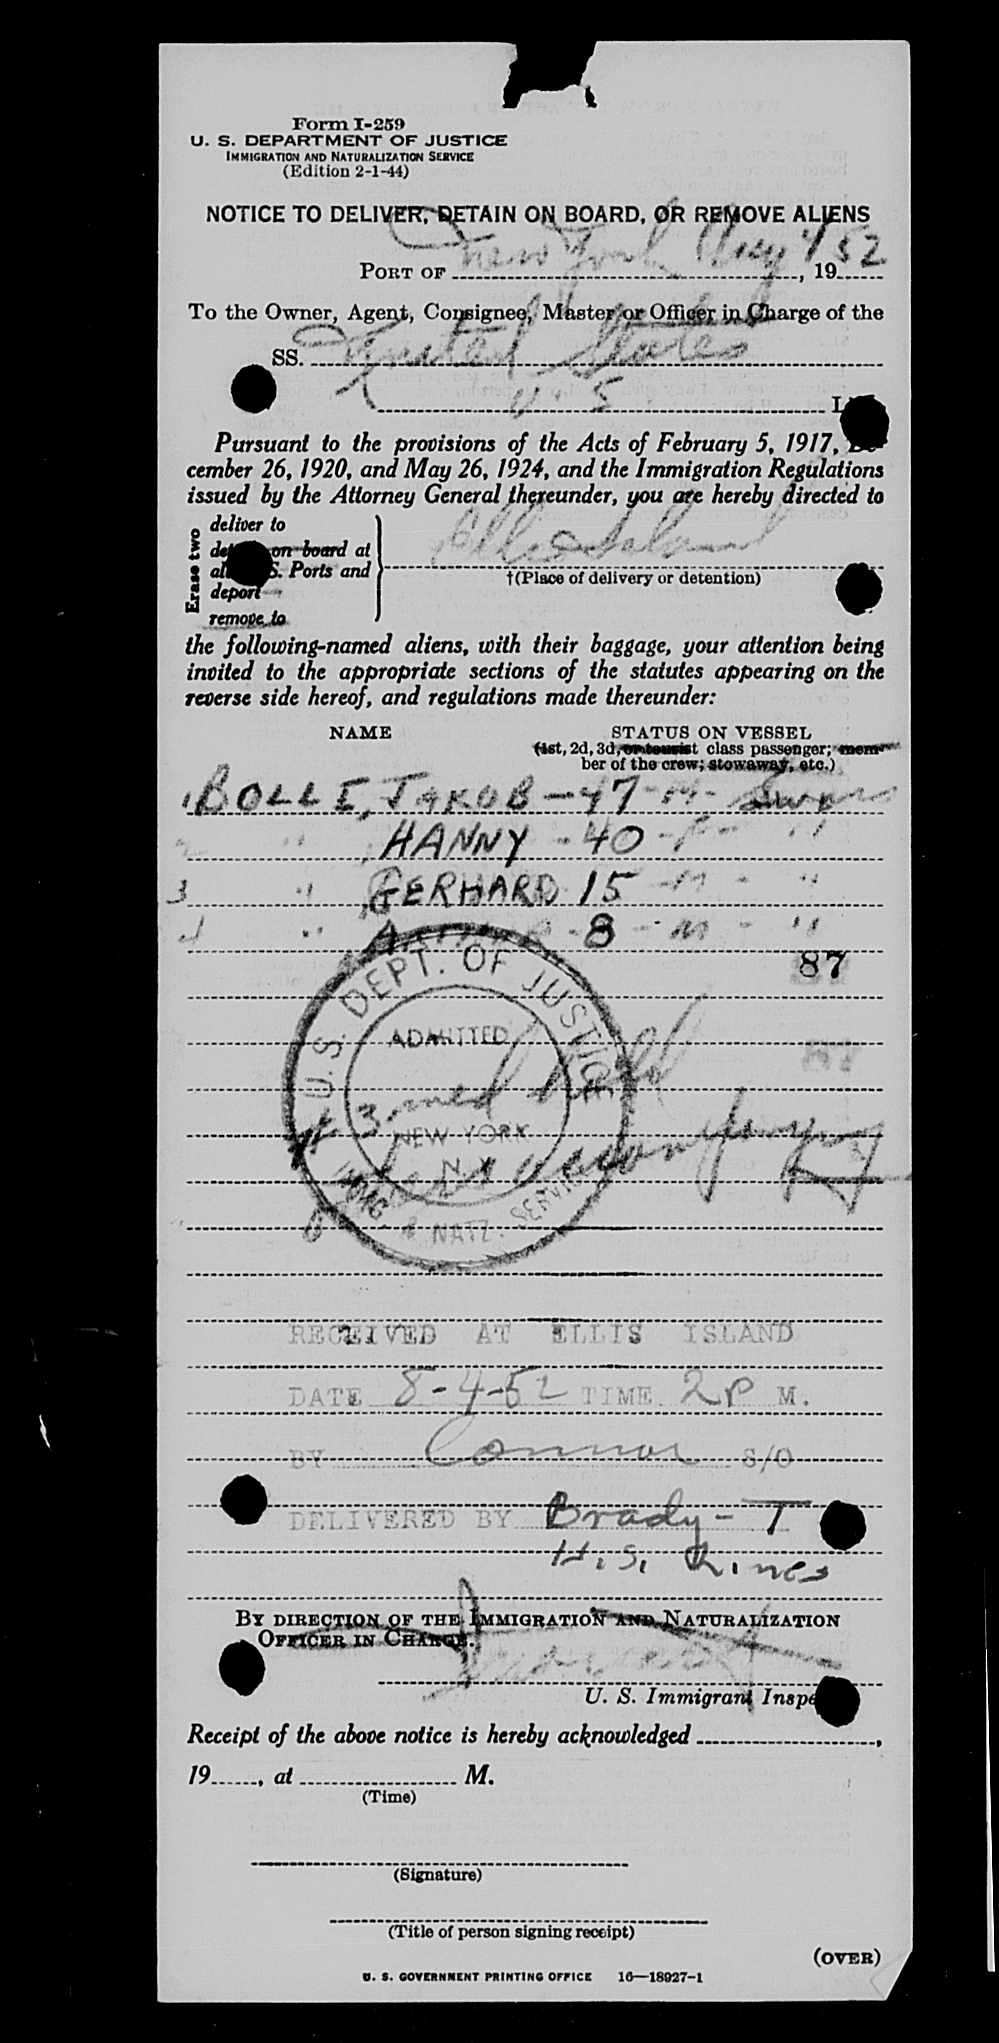 Form I-259
U. S. DEPARTMENT OF JUSTICE
IMMIGRATION AND NATURALIZATION SERVICE
(Edition 2-1-44)
NOTICE TO DELIVER, DETAIN ON BOARD, OR REMOVE ALIENS
PORT OF New York Aug 4, 1952
To the Owner, Agent, Consignee, Master or Officer in Charge of the
SS. United States
U. S.
Pursuant to the provisions of the Acts of February 5, 1917, De-
cember 26, 1920, and May 26, 1924, and the Immigration Regulations
issued by the Attorney General thereunder, you are hereby directed to
Erase two
deliver to
on board at
S. Ports and
deport
remove to
Ellis Island
†(Place of delivery or detention)
the following-named aliens, with their baggage, your attention being
invited to the appropriate sections of the statutes appearing on the
reverse side hereof, and regulations made thereunder:
NAME STATUS ON VESSEL
(1st, 2d, 3d, or tourist class passenger; mem-
ber of the crew; stowaway, etc.)
1 BOLLI, JAKOB - 47 - M - Swiss
2 " , HANNY - 40 - F - "
3 " , GERHARD 15 - M - "
4 " , 8 - M - "
87
U.S. DEPT. OF JUSTICE
ADMITTED
NEW YORK
N.Y.
IMMIG. & NATZ. SERVICE
# 3 med held
accompanying
RECEIVED AT ELLIS ISLAND
DATE 8-4-52 TIME 2 P M.
BY Connor S/O
DELIVERED BY Brady - T
U.S. Lines
BY DIRECTION OF THE IMMIGRATION AND NATURALIZATION
OFFICER IN CHARGE.
U. S. Immigrant
Receipt of the above notice is hereby acknowledged ,
19 , at M.
(Time)
(Signature)
(Title of person signing receipt)
(OVER)
U. S. GOVERNMENT PRINTING OFFICE 16—18927-1